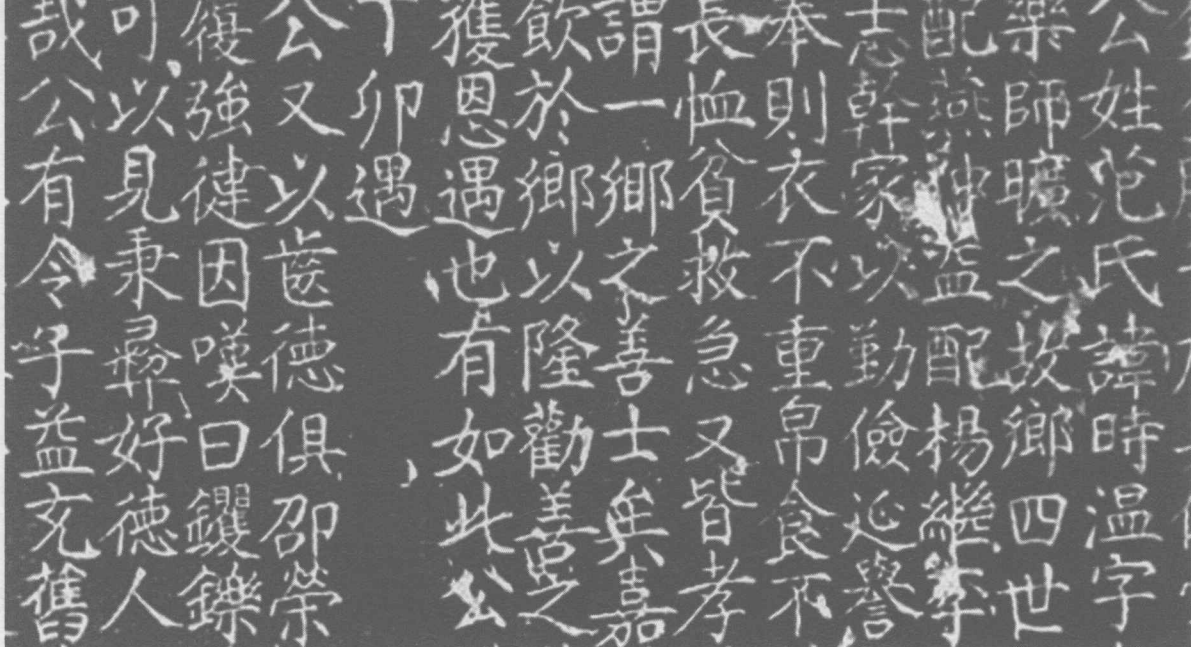 公姓范氏諱時温字
樂師曠之故鄉四世
配燕神益配楊繼李
志幹家以勤儉延譽
奉則衣不重帛食不
長恤貧救急又皆孝
謂一鄉之善士矣嘉
飲於鄉以隆勸善之
獲恩遇也有如此公
卯遇
公又以齒徳俱卲榮
復強健因嘆曰钁鑠
可以見秉彝好徳人
哉公有令子益充舊